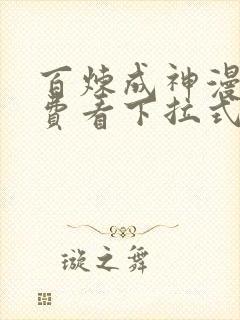 百炼成神漫
费看下拉式
璇之舞